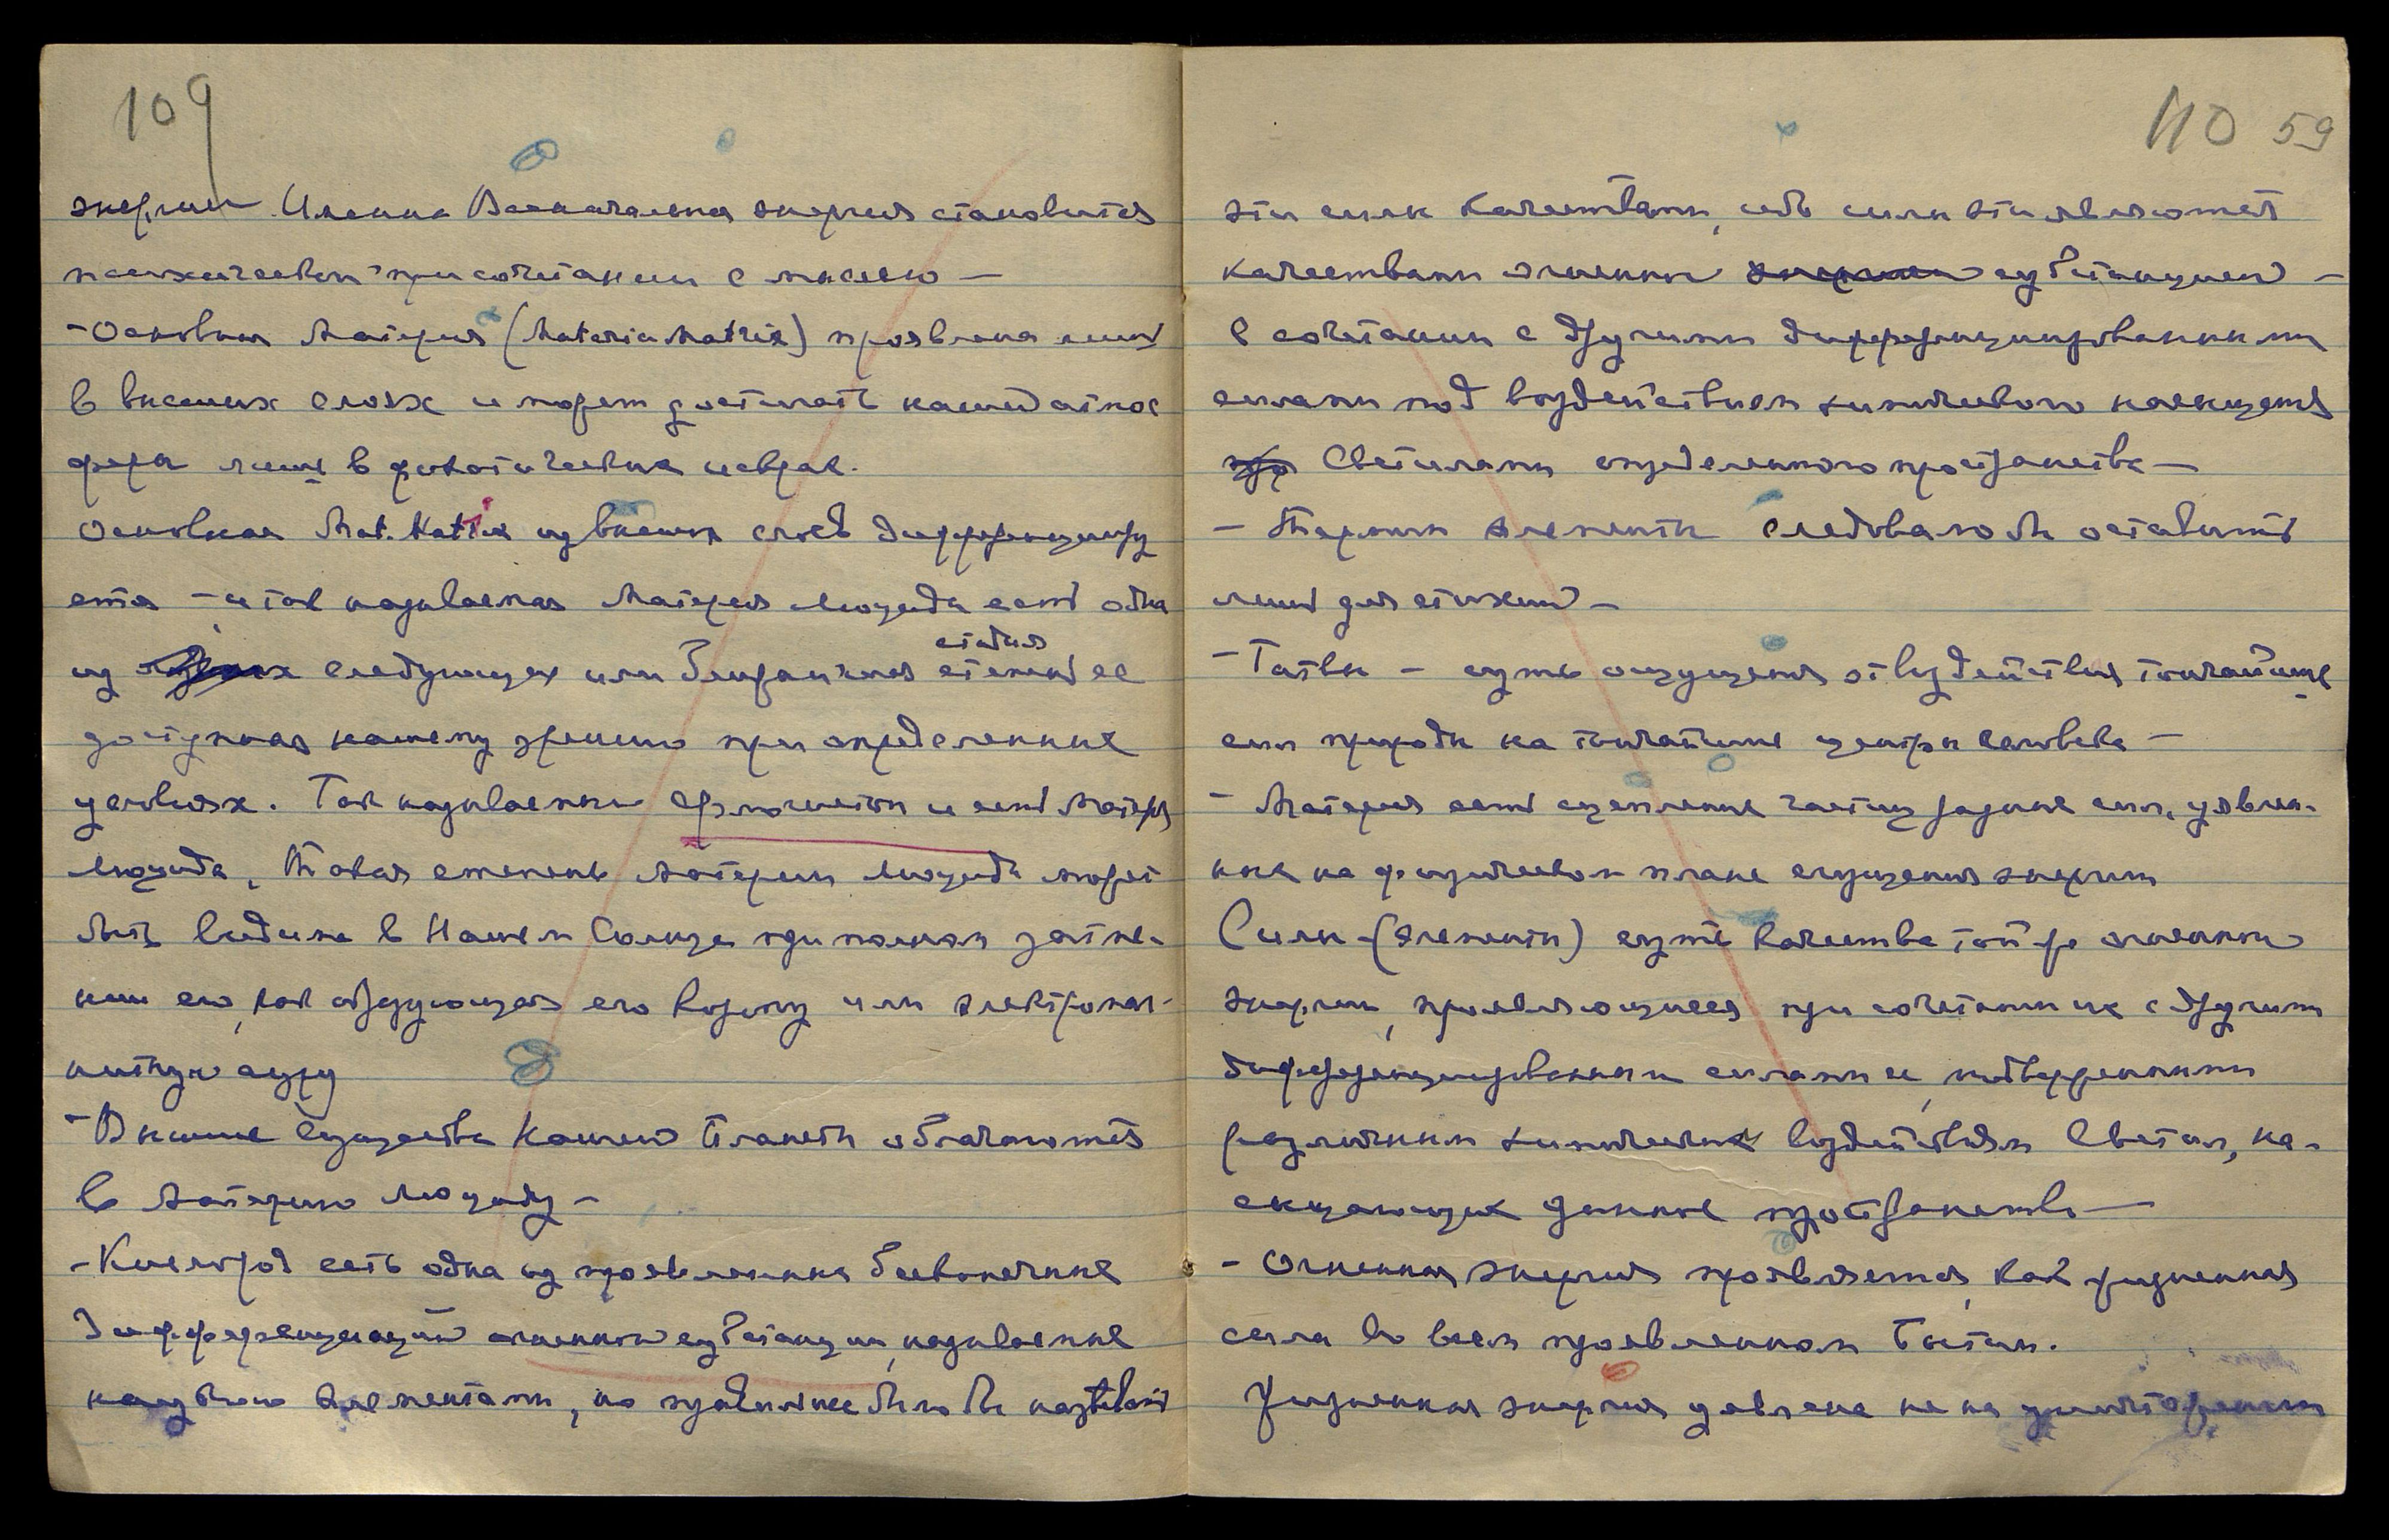 109
энергии. Именно Всеначальная энергия становится
психической при сочетании с мыслью —
- Основная Материя (Materia Matrix) проявлена лишь
в высших слоях и может достигать нашей атмос
феры лишь в фохатических искрах.
Основная Mat. Matrix из высших слоев дифференциру
ется - и так называемая Материя Люцида есть одна
из следующих или ближайшая степень ее
стадия
доступная нашему зрению при определенных
условиях. Так называемый и есть Матерія
Люцида, Такая степень Материи Люцида может
быть видима в Нашем Солнце при полном затме-
нии его, как образующая его корону или электромаг-
нитную ауру
- Высшие Существа нашей Планеты облачаются
в Материю Люциду -
- Кислород есть одна из проявленных бесконечных
Дифференциаций огненной субстанции, называемые
наукою элементами, но правильнее было бы назвать
110 59
эти силы качествами, ибо силы эти являются
качествами огненной энергии субстанцией -
в сочетании с другими дифференцированными
силами под воздействием химического насыщения
Светилами определенного пространства —
- Термин элементы следовало бы оставить
лишь для стихий -
- Татвы - суть ощущения от воздействия тончайших
сил природы на тончайшие центры человека -
- Материя есть сцепление частиц разных сил, явлен-
ное на физическом плане сгущения энергии
Силы - (элементы) суть качества той же огненной
энергии, проявляющиеся при сочетании их с другими
дифференцированными силами ее, подверженными
различным химическим воздействиям Светил, на-
сыщающих данное пространство —
- Огненная энергия проявляется, как жизненная
сила во всем проявленном Бытии.
Жизненная энергия явлена не на уничтожении